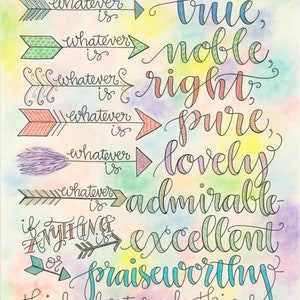 whatever is true,
whatever is noble,
whatever is right,
whatever is pure,
whatever is lovely
whatever is admirable
if ANYTHING is excellent
or praiseworthy
think about